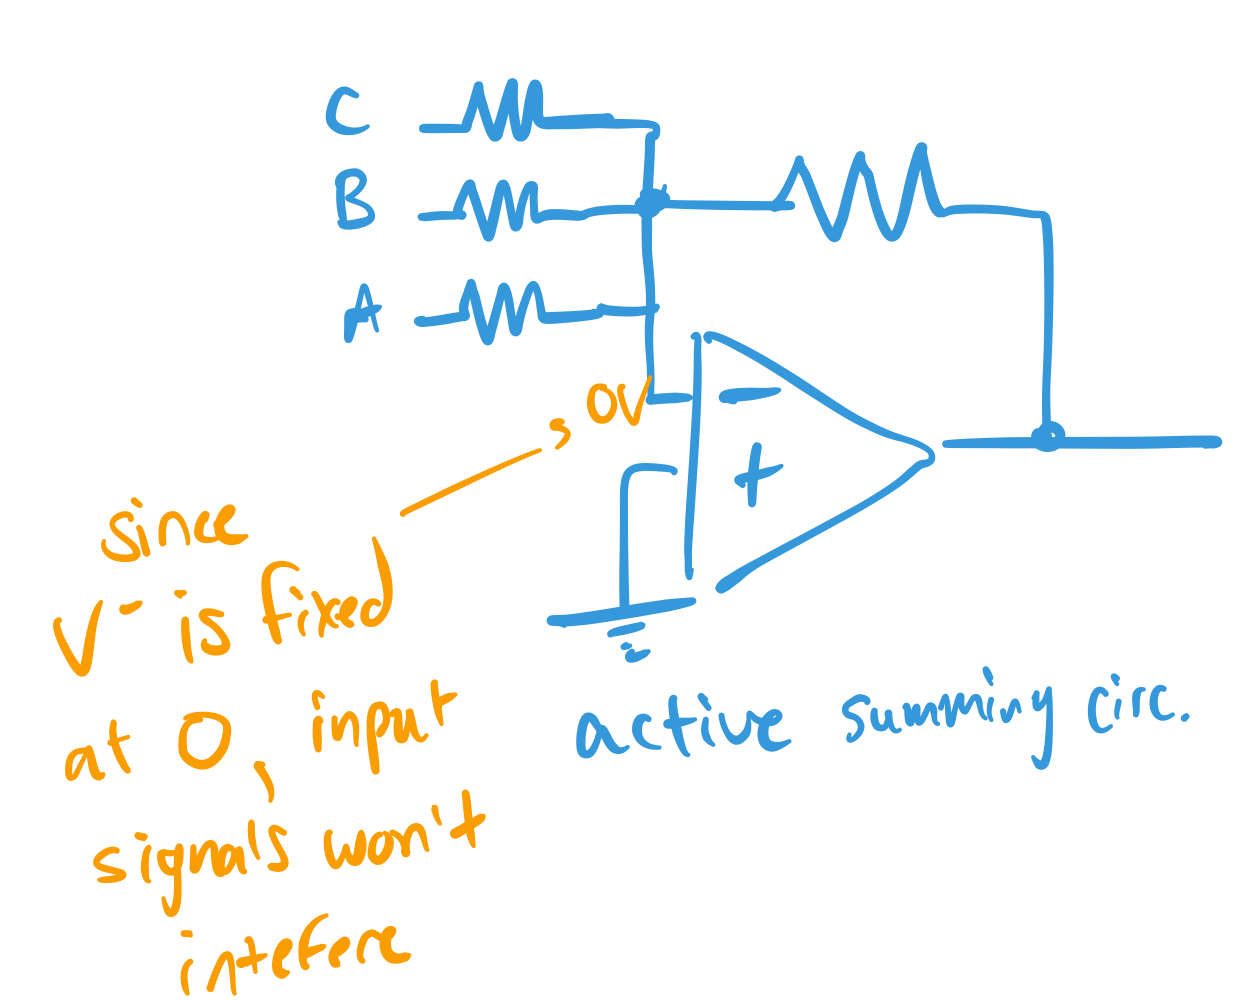 C
B
A
, 0V
−
+
since
V⁻ is fixed
at 0, input
signals won't
intefere
active summing circ.